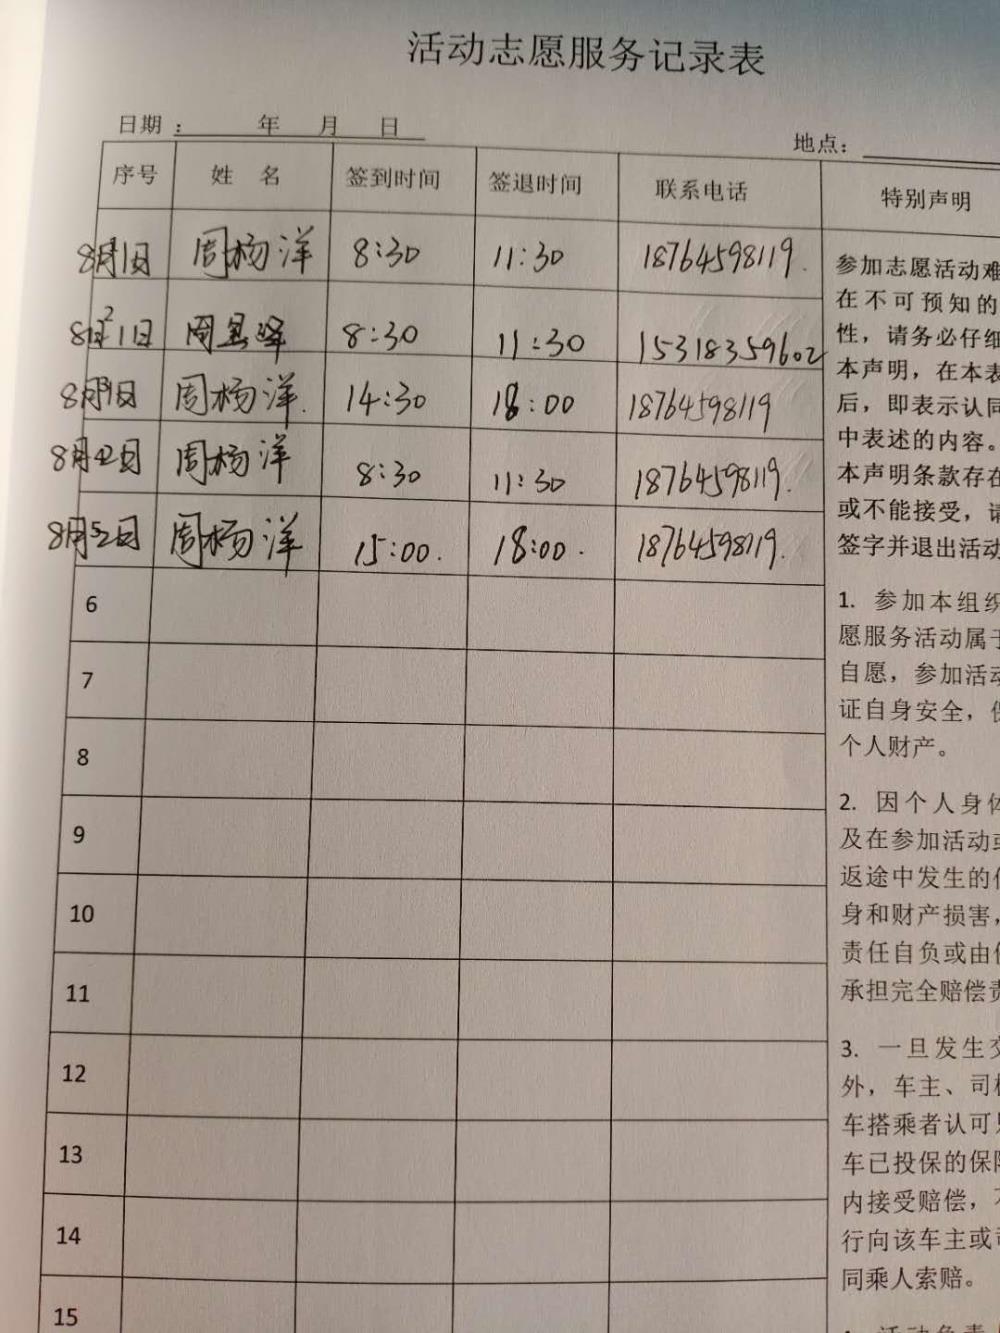 活动志愿服务记录表
日期： 年 月 日
地点：
序号 姓 名 签到时间 签退时间 联系电话 特别声明
8月1日 周杨洋 8:30 11:30 18764598119.
8月1日 周 8:30 11:30 15318359602
8月1日 周杨洋. 14:30 18:00 18764598119
8月2日 周杨洋 8:30 11:30 18764598119.
8月2日 周杨洋 15:00. 18:00. 18764598119.
6
7
8
9
10
11
12
13
14
15
参加志愿活动难
在不可预知的
性，请务必仔细
本声明，在本表
后，即表示认同
中表述的内容。
本声明条款存在
或不能接受，请
签字并退出活动
1. 参加本组织
愿服务活动属于
自愿，参加活动
证自身安全，保
个人财产。
2. 因个人身体
及在参加活动或
返途中发生的
身和财产损害，
责任自负或由
承担完全赔偿责
3. 一旦发生交
外，车主、司机
车搭乘者认可
车已投保的保险
内接受赔偿，不
行向该车主或司
同乘人索赔。